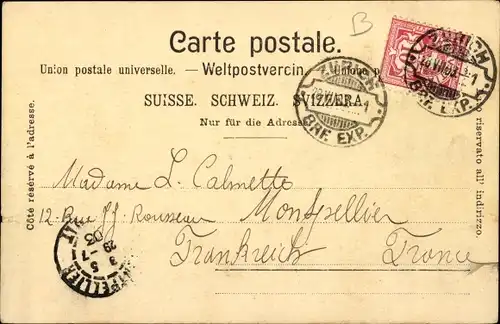 B
Carte postale.
Union postale universelle. — Weltpostverein. — Unione p
SUISSE. SCHWEIZ. SVIZZERA.
Nur für die Adresse
Côté résérvé à l'adresse.
riservato all' indirizzo.
ZÜRICH
BRF. EXP.
ZÜRICH
BRF. EXP.
Madame L. Calmette
12. Rue JJ. Rousseau Montpellier
Frankreich France
MONTPELLIER